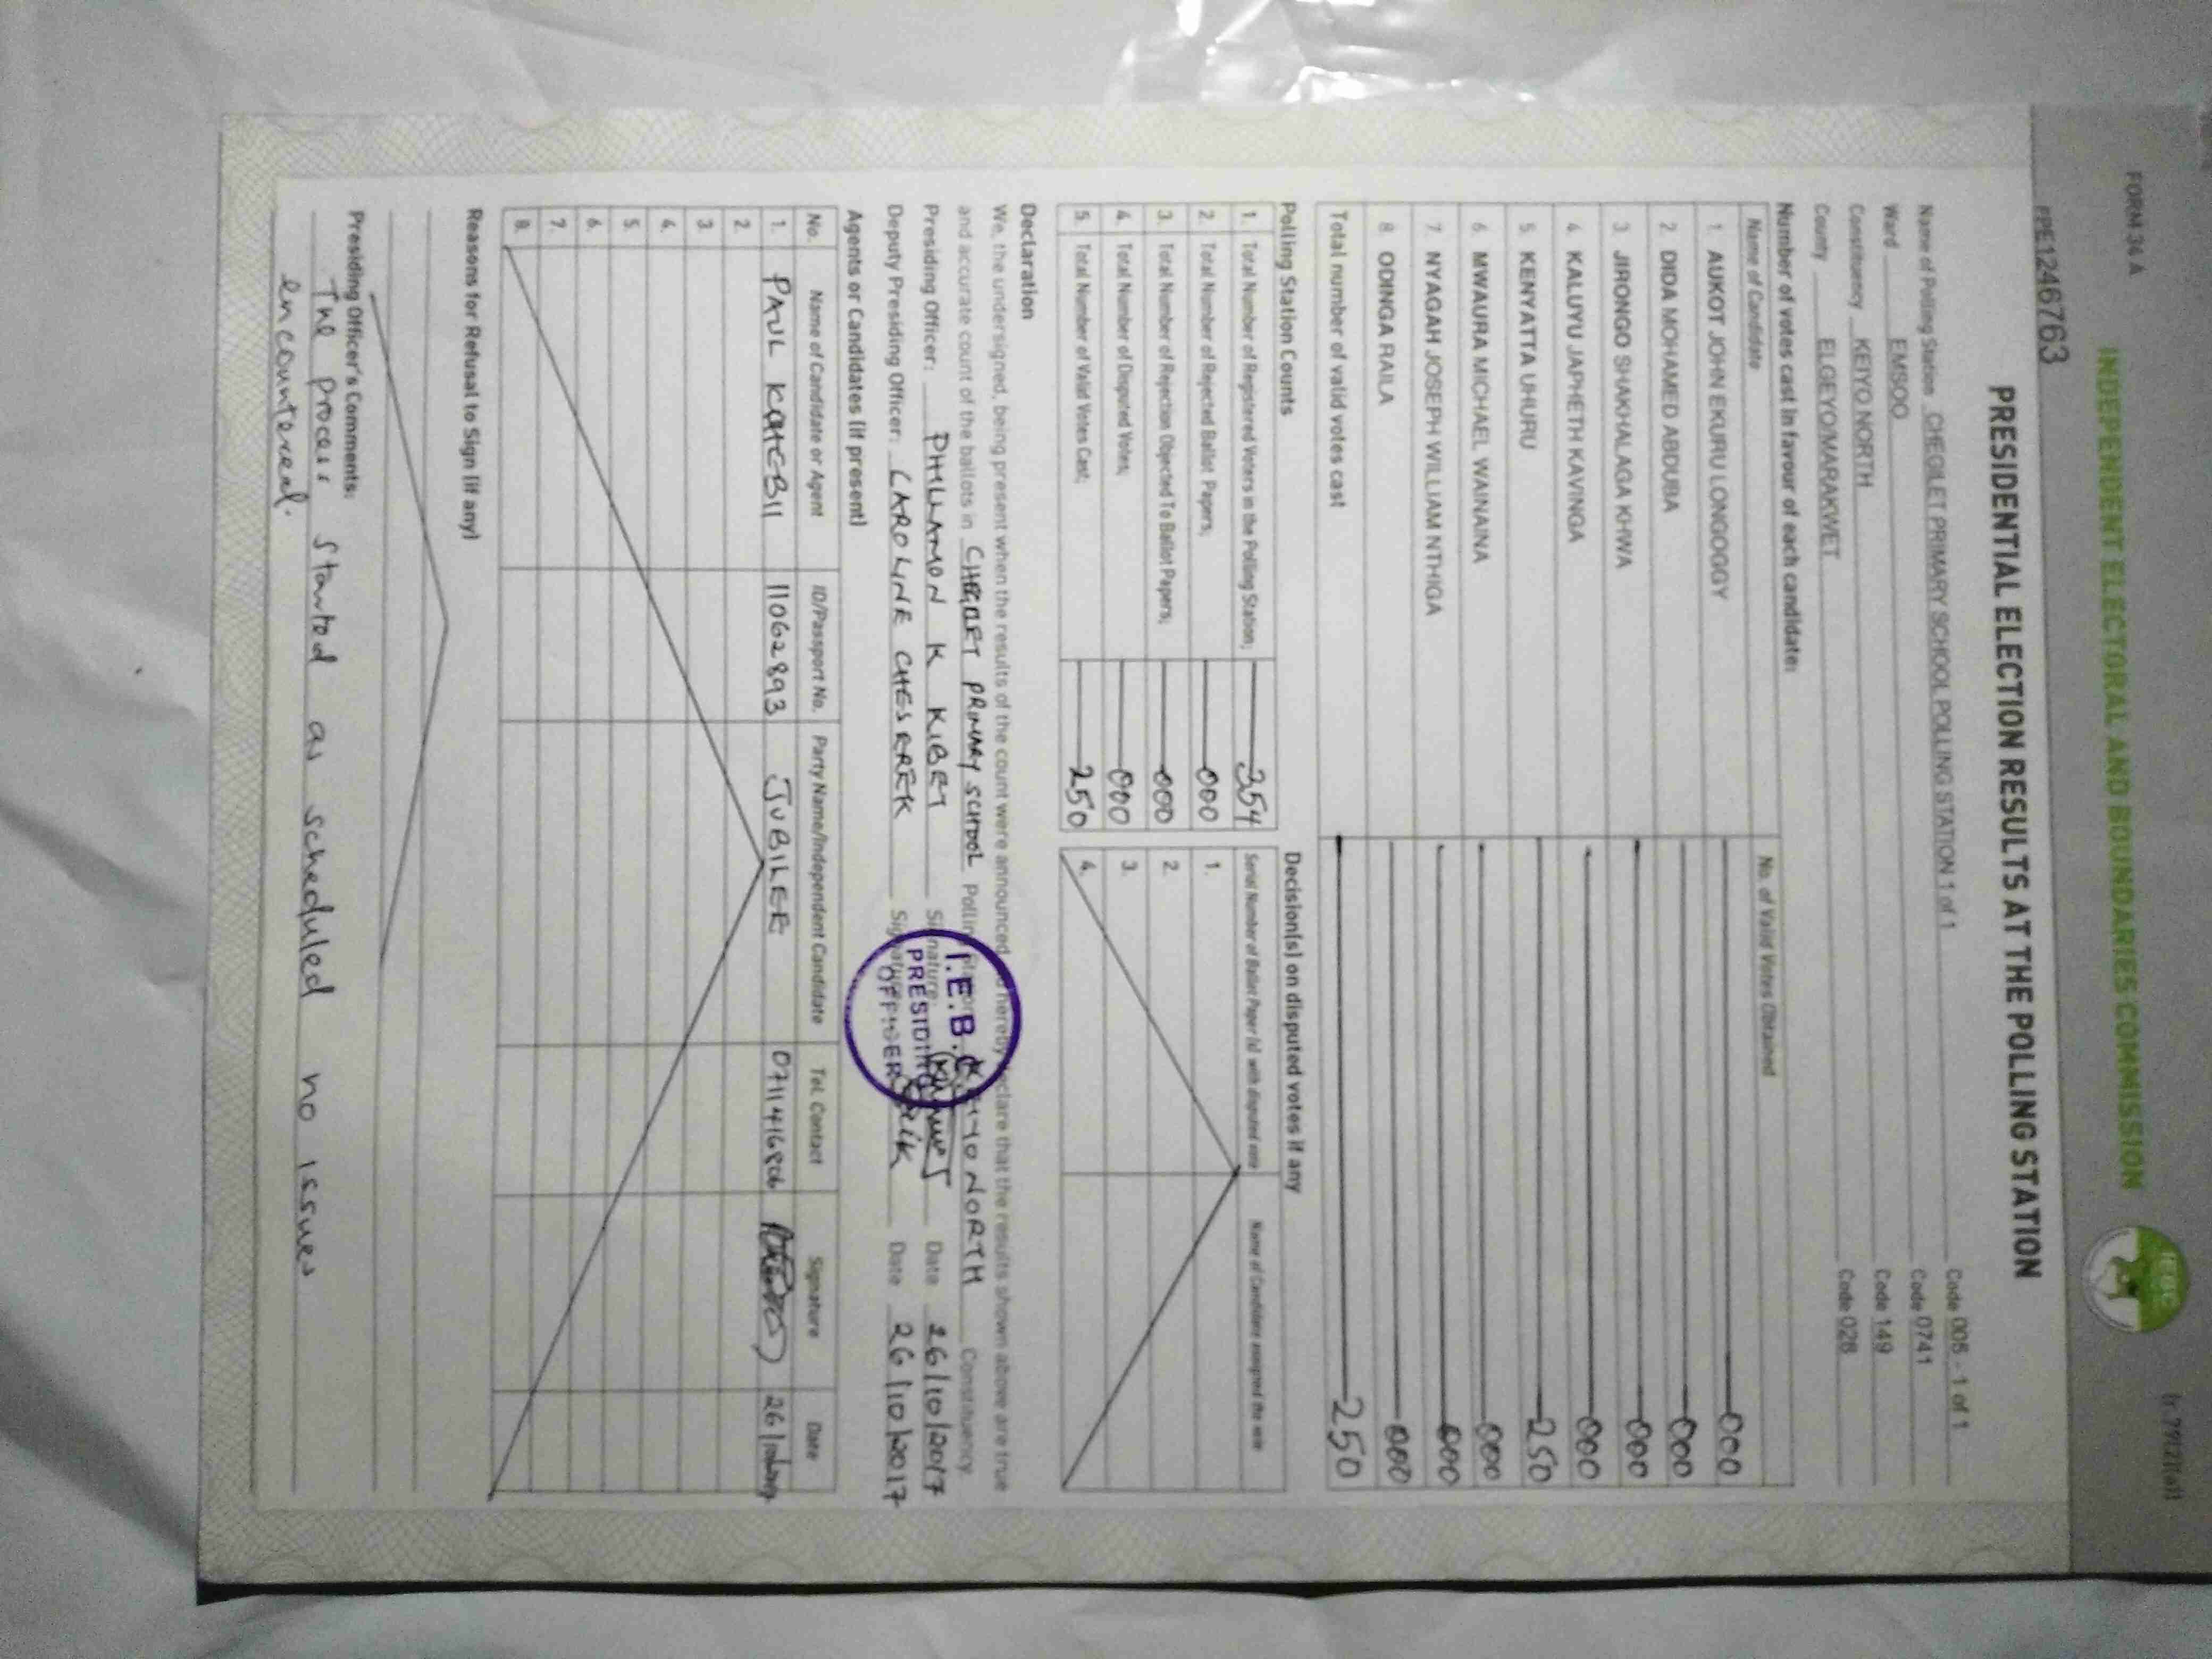 FORM 34 A
INDEPENDENT ELECTORAL AND BOUNDARIES COMMISSION
IEBC
PPE1246763
PRESIDENTIAL ELECTION RESULTS AT THE POLLING STATION
Name of Polling Station CHEGILET PRIMARY SCHOOL POLLING STATION 1 of 1 Code 005 - 1 of 1
Ward EMSOO Code 0741
Constituency KEIYO NORTH Code 149
County ELGEYO/MARAKWET Code 028
Number of votes cast in favour of each candidate:
Name of Candidate No. of Valid Votes Obtained
1. AUKOT JOHN EKURU LONGOGGY 000
2. DIDA MOHAMED ABDUBA 000
3. JIRONGO SHAKHALAGA KHWA 000
4. KALUYU JAPHETH KAVINGA 000
5. KENYATTA UHURU 250
6. MWAURA MICHAEL WAINAINA 000
7. NYAGAH JOSEPH WILLIAM NTHIGA 000
8. ODINGA RAILA 000
Total number of valid votes cast 250
Polling Station Counts
1. Total Number of Registered Voters in the Polling Station; 354
2. Total Number of Rejected Ballot Papers; 000
3. Total Number of Rejection Objected To Ballot Papers; 000
4. Total Number of Disputed Votes; 000
5. Total Number of Valid Votes Cast; 250
Decision(s) on disputed votes if any
Serial Number of Ballot Paper (s) with disputed vote Name of Candidate assigned the vote
1.
2.
3.
4.
Declaration
We, the undersigned, being present when the results of the count were announced, do hereby declare that the results shown above are true
and accurate count of the ballots in PRIMARY SCHOOL Polling NORTH Constituency
Presiding Officer: PHILLAMON K KIBET Signature Date 26/10/2017
Deputy Presiding Officer: CAROLINE CHESEREK Signature Date 26/10/2017
I.E.B.C
PRESIDING
OFFICER
Agents or Candidates (if present)
No. Name of Candidate or Agent ID/Passport No. Party Name/Independent Candidate Tel. Contact Signature Date
1. PAUL 11062893 JUBILEE
2.
3.
4.
5.
6.
7.
8.
Reasons for Refusal to Sign (if any)
Presiding Officer's Comments:
The process started as scheduled no issues
encountered.